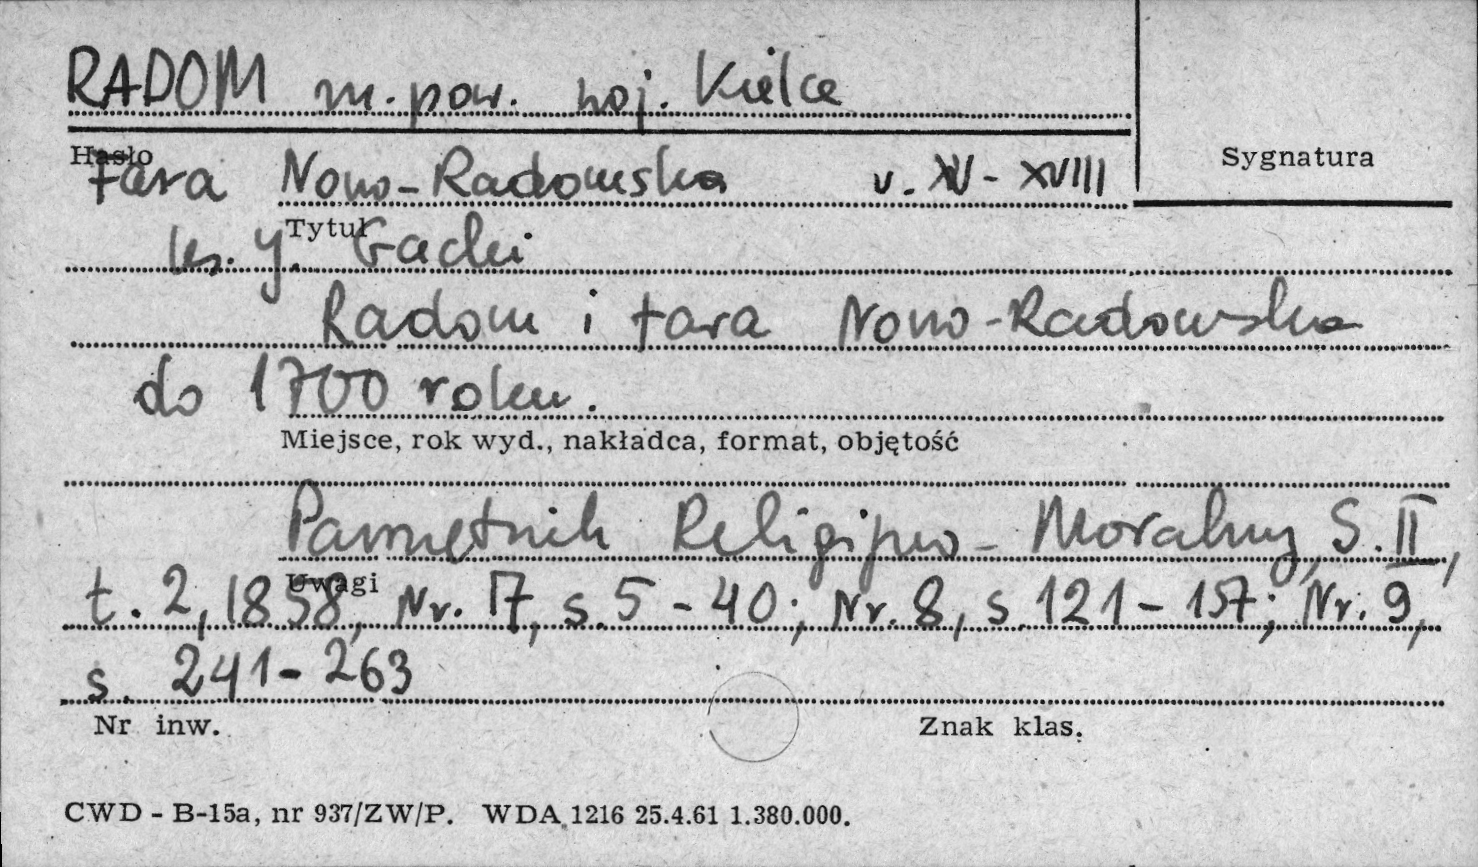 RADOM m. pow. woj. Kielce
Hasło
Sygnatura
Fara Nowo-Radomska w. XV - XVIII
Tytuł
ks. J. Gacki
Radom i fara Nowo-Radomska
do 1700 roku.
Miejsce, rok wyd., nakładca, format, objętość
Pamiętnik Religijno - Moralny, S. II,
Uwagi
t. 2, 1858, Nr. 17, s. 5 - 40; Nr. 8, s. 121 - 157; Nr. 9,
s. 241 - 263
Nr inw.
Znak klas.
CWD - B-15a, nr 937/ZW/P. WDA 1216 25.4.61 1.380.000.